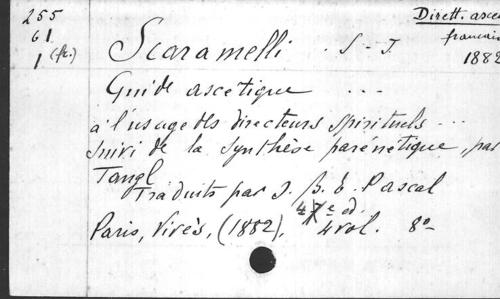 255
61
1 (fr.)
Dirett. asce
français
1882
Scaramelli . S-J.
Guide ascétique ...
à l'usage des directeurs spirituels ...
suivi de la synthèse parénétique, par
Tangl
Traduits par J. B. E. Pascal
47e éd.
Paris, Vivès, (1882), 4 vol. 8º